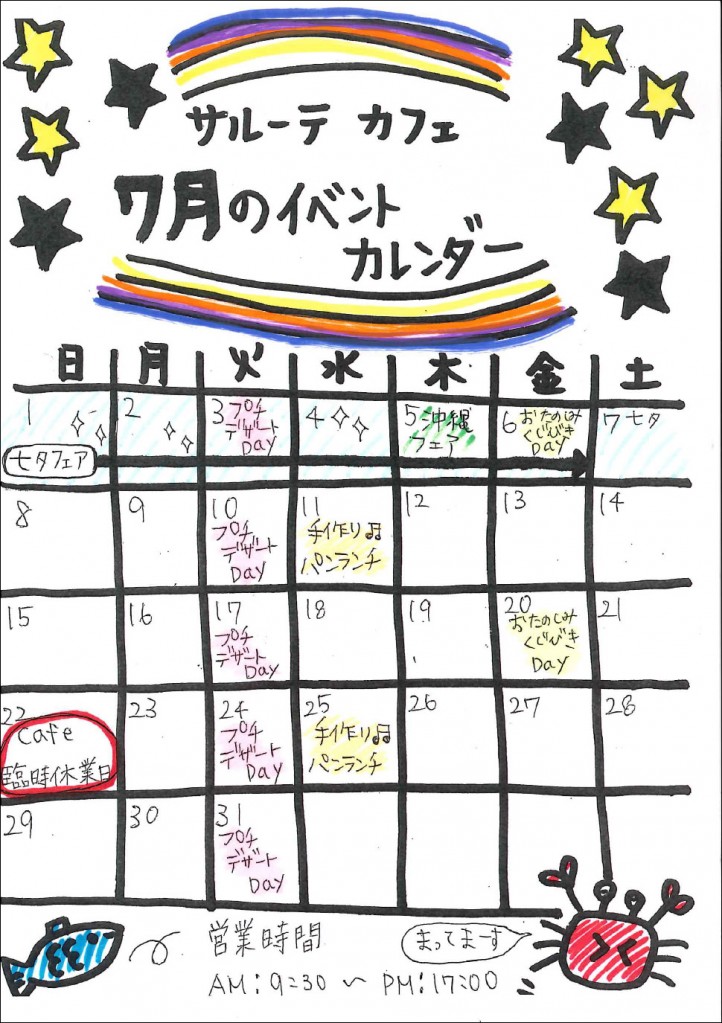 サルーテ カフェ
7月のイベント
カレンダー
日 月 火 水 木 金 土
1 2 3 4 5 6 7
プチ
デザート
Day
沖縄
フェア
おたのしみ
くじびき
DAY
七夕
七夕フェア
8 9 10 11 12 13 14
プチ
デザート
Day
手作り♫
パンランチ
15 16 17 18 19 20 21
プチ
デザート
Day
おたのしみ
くじびき
DAY
22 23 24 25 26 27 28
Cafe
臨時休業日
プチ
デザート
Day
手作り♫
パンランチ
29 30 31
プチ
デザート
Day
営業時間
AM:9:30 〜 PM:17:00
まってまーす